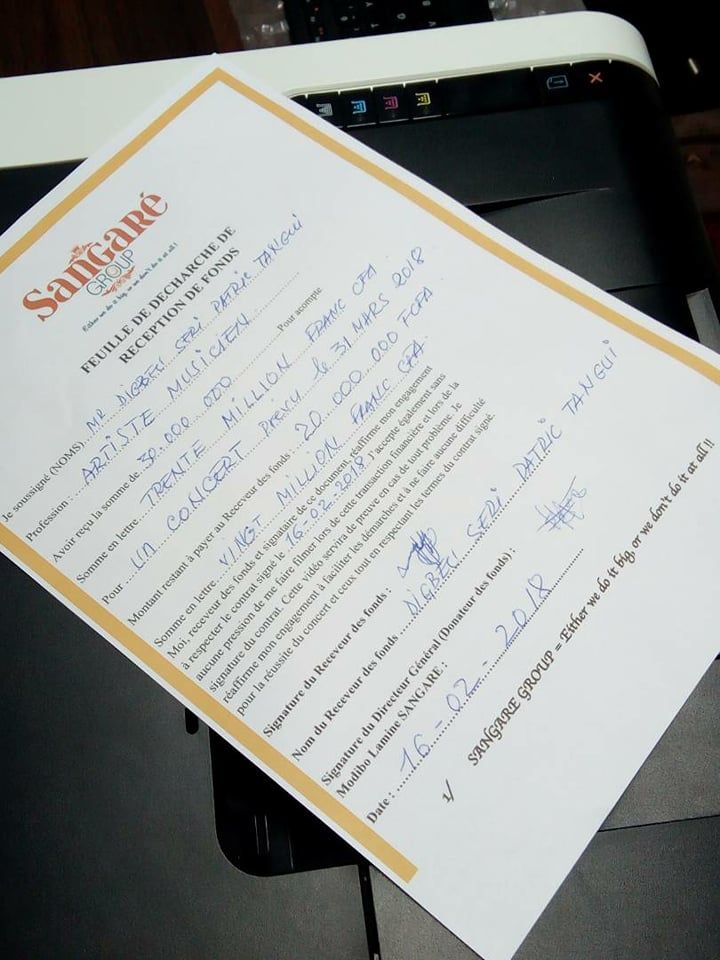 Sangaré
GROUP
Either we do it big, or we don't do it at all !
FEUILLE DE DECHARCHE DE
RECEPTION DE FONDS
Je soussigné (NOMS) MR DIGBEU SERI PATRIC TANGUI
Profession : ARTISTE MUSICIEN
Avoir reçu la somme de 30.000.000 Pour acompte
Somme en lettre TRENTE MILLION FRANC CFA
Pour UN CONCERT PRÉVU le 31 MARS 2018
Montant restant à payer au Receveur des fonds : 20 000 000 FCFA
Somme en lettre VINGT MILLION FRANC CFA
Moi, receveur des fonds et signataire de ce document, réaffirme mon engagement
à respecter le contrat signé le 16-02-2018. J'accepte également sans
aucune pression de me faire filmer lors de cette transaction financière et lors de la
signature du contrat. Cette vidéo servira de preuve en cas de tout problème. Je
réaffirme mon engagement à faciliter les démarches et à ne faire aucune difficulté
pour la réussite du concert et ceux tout en respectant les termes du contrat signé.
Signature du Receveur des fonds :
Nom du Receveur des fonds DIGBEU SERI PATRIC TANGUI
Signature du Directeur Général (Donateur des fonds) :
Modibo Lamine SANGARE :
Date : 16 - 02 - 2018
1/ SANGARE GROUP = Either we do it big, or we don't do it at all !!